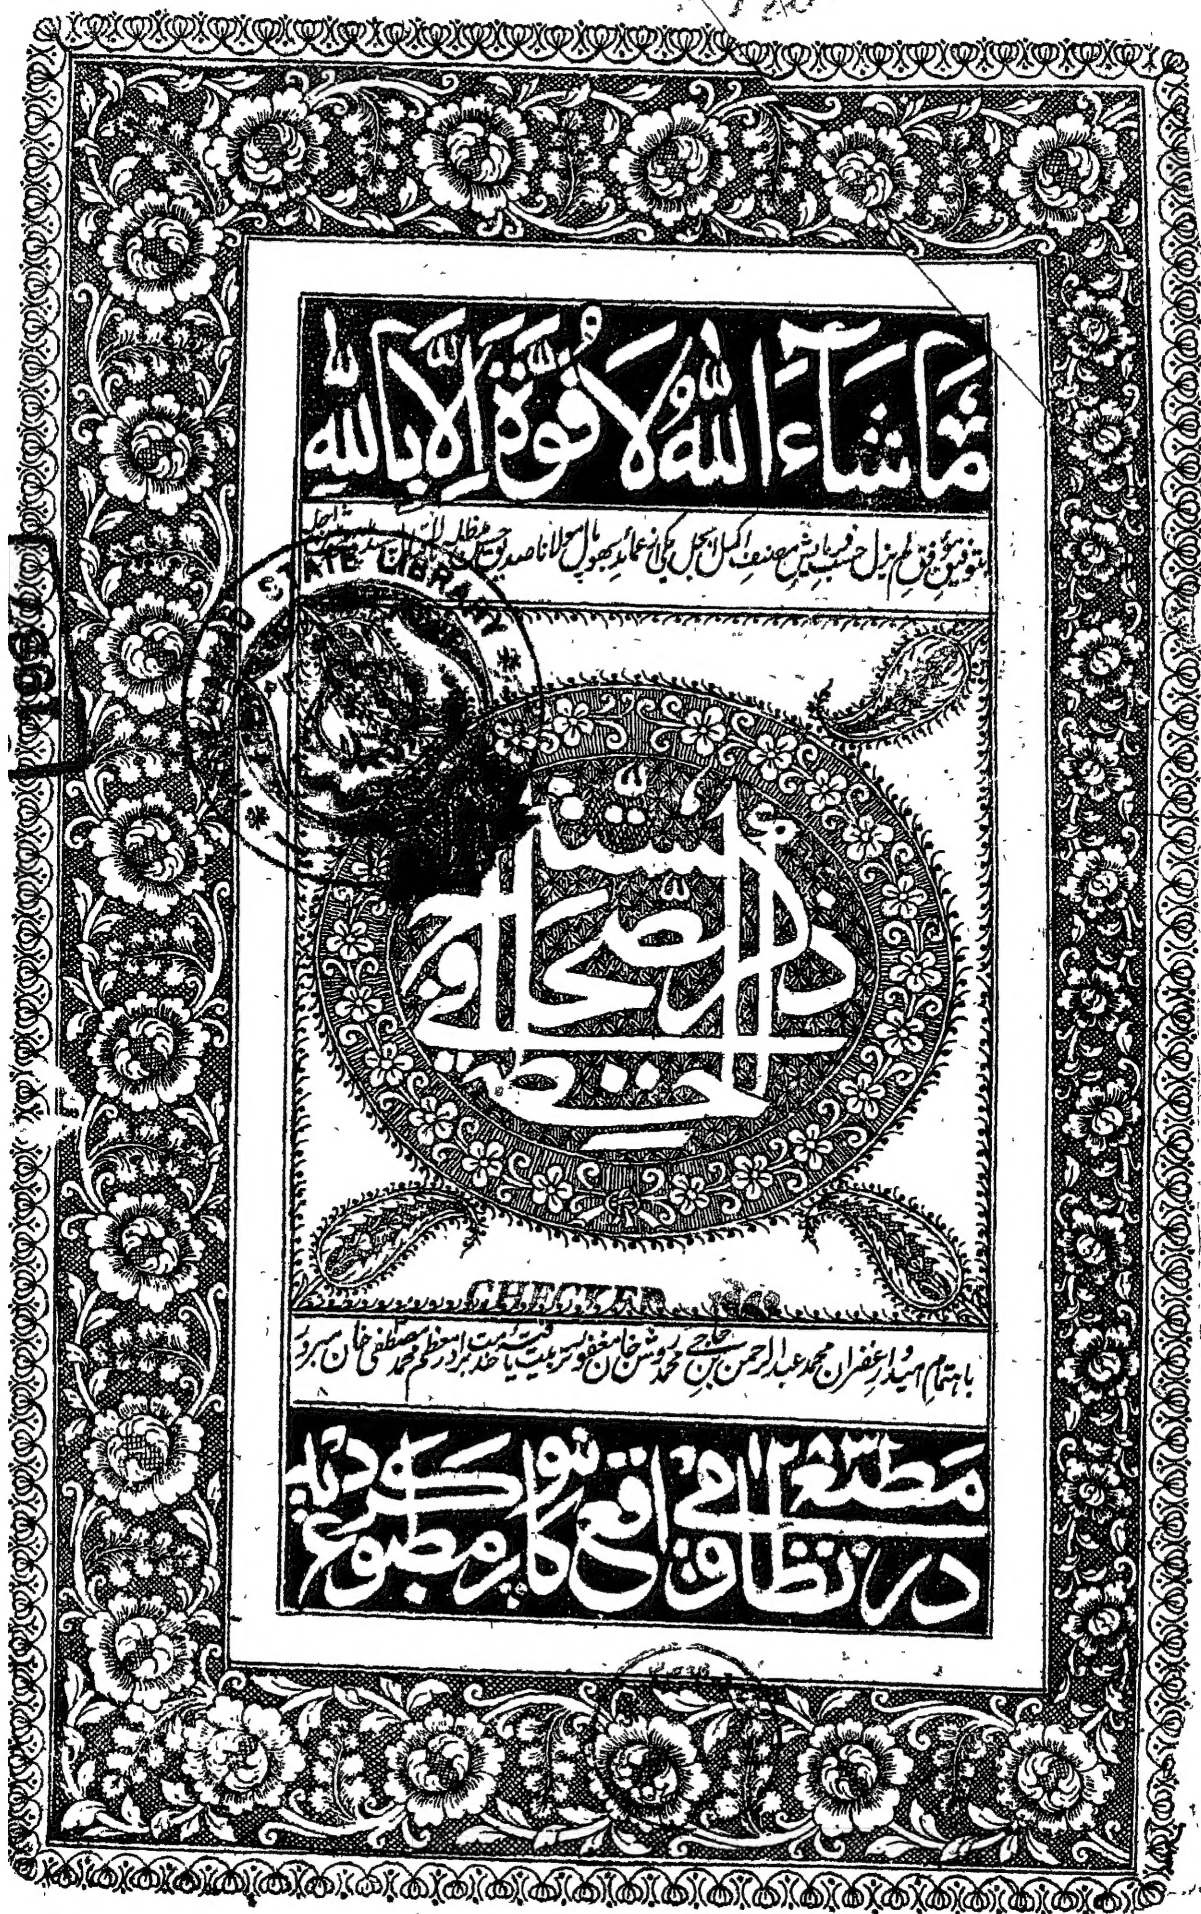 مَا شَآءَ اللّٰهُ لَا قُوَّةَ اِلَّا بِاللّٰهِ
بتوفیق لم یزل حسب فرمایش مصنف اکمل اجل یکی از عمائد بھوپال مولانا صدیق حسن
STATE LIBRARY
الحطة
فی ذکر الصحاح
الستة
CHECKED
باہتمام امیدوار غفران محمد عبدالرحمن بن حاجی محمد روشن خان مغفور تربیت یافتہ خدمت برادر معظم محمد مصطفی خان مبرور
در مطبع نظامی واقع کانپور مطبوع گردید
۱۲۸۳